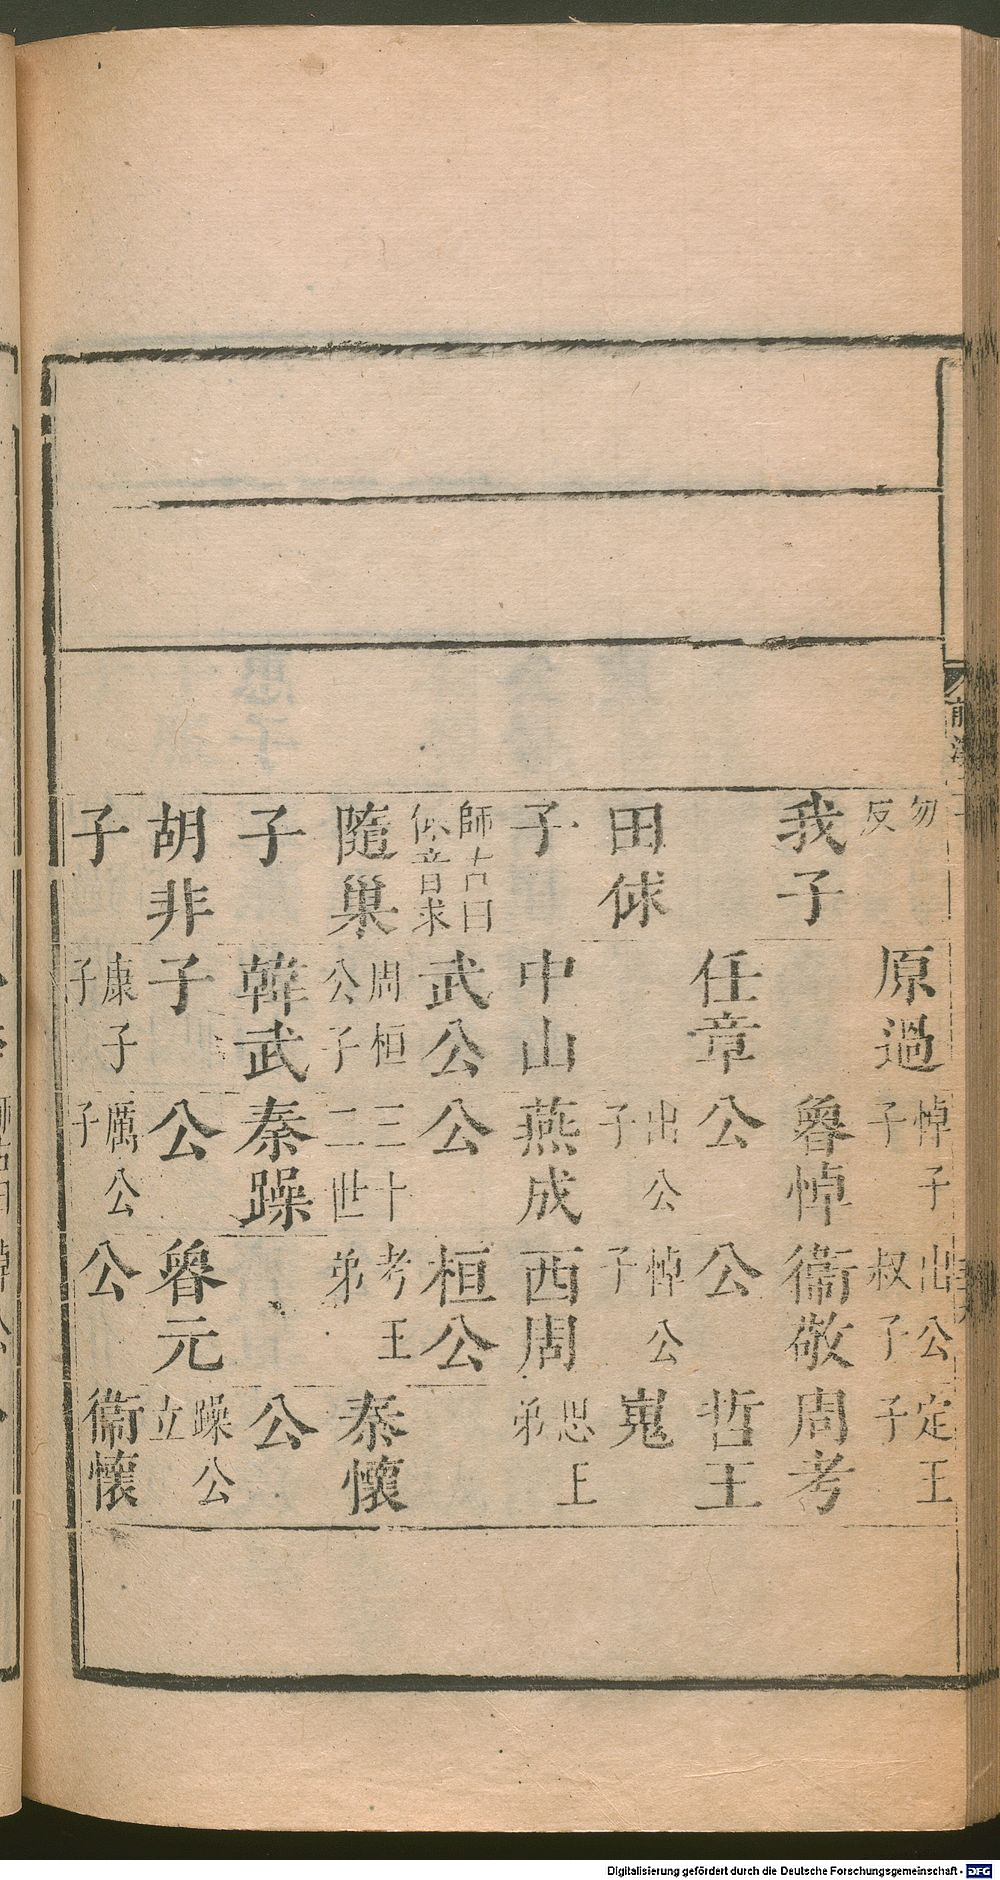 勿反 原過 悼子子 出公叔子 定王子
我子 魯悼 衞敬 周考
任章 公 公 哲王
田俅 出公子 悼公子 嵬
子 中山 燕成 西周 思王弟
師古曰俅音求 武公 公 桓公
隨巢 周桓公子 三十二世 考王弟 秦懷
子 韓武 秦躁 公
胡非 子 公 魯元 躁公立
子 康子子 厲公子 公 衞懷
前漢
Digitalisierung gefördert durch die Deutsche Forschungsgemeinschaft - DFG